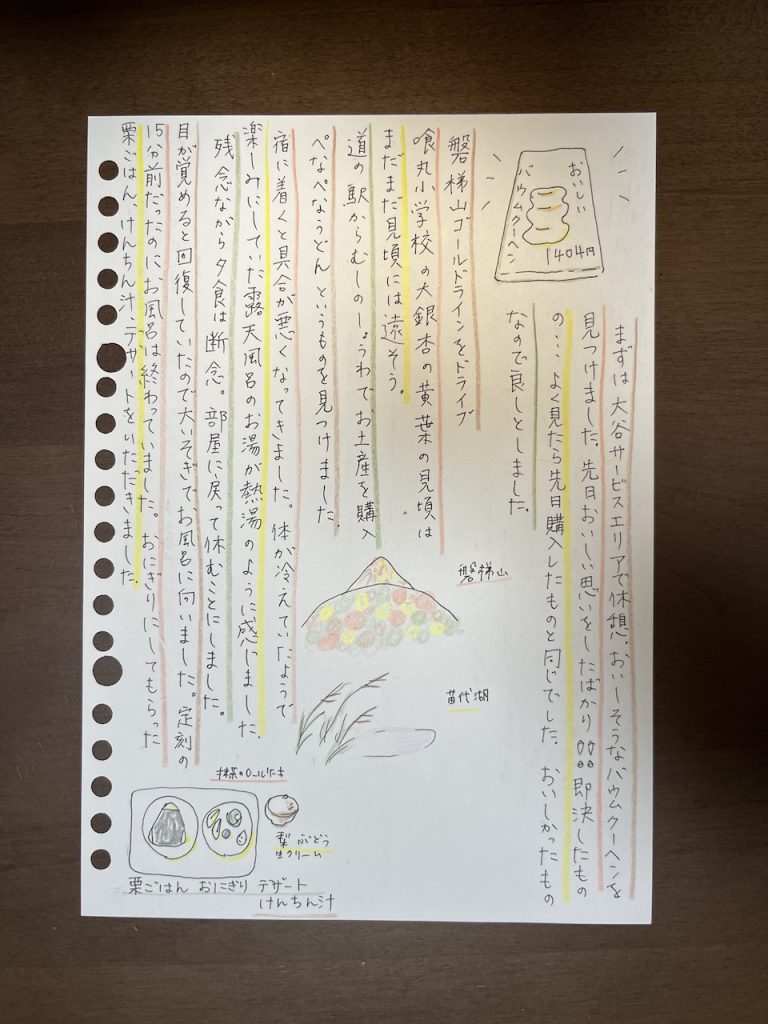 おいしい
バウムクーヘン
1404円
まずは大谷サービスエリアで休憩。おいしそうなバウムクーヘンを
見つけました。先日おいしい思いをしたばかり!!即決したもの
の…よく見たら先日購入したものと同じでした。おいしかったもの
なので良しとしました。
磐梯山ゴールドラインをドライブ
喰丸小学校の大銀杏の黄葉の見頃は
まだまだ見頃には遠そう。
道の駅からむしのしょうわでお土産を購入
ぺなぺなうどんというものを見つけました
宿に着くと具合が悪くなってきました。体が冷えていたようで
楽しみにしていた露天風呂のお湯が熱湯のように感じました。
残念ながら夕食は断念。部屋に戻って休むことにしました。
目が覚めると回復していたので大いそぎでお風呂に向いました。定刻の
15分前だったのに、お風呂は終わっていました。おにぎりにしてもらった
栗ごはん、けんちん汁、デザートをいただきました。
磐梯山
苗代湖
抹茶のロールケーキ
梨 ぶどう
生クリーム
栗ごはん おにぎり デザート
けんちん汁